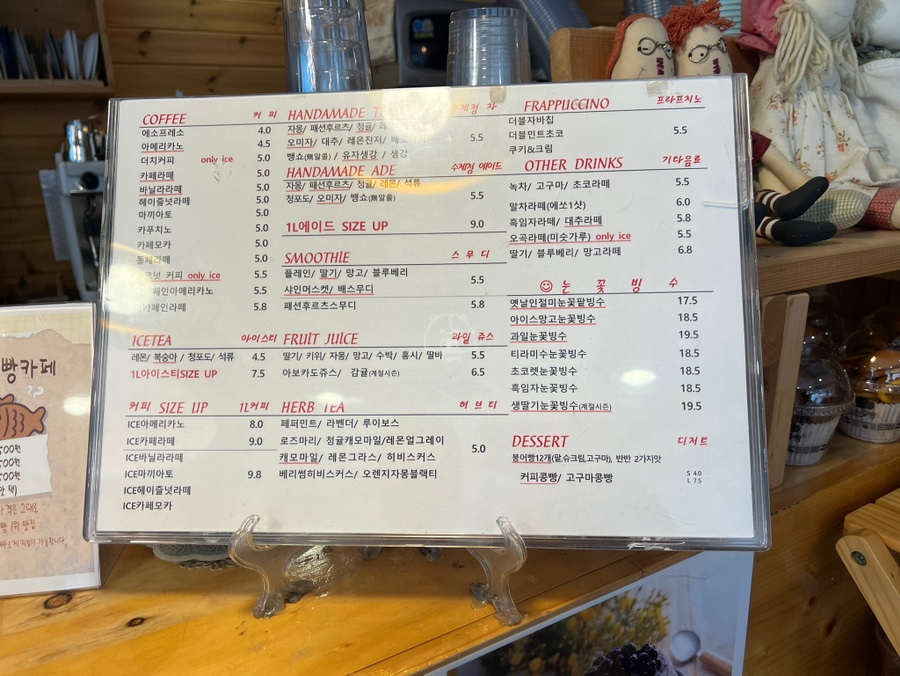 COFFEE 커 피
에소프레소 4.0
아메리카노 4.5
더치커피 only ice 5.0
카페라떼 5.0
바닐라라떼 5.0
헤이즐넛라떼 5.0
마끼아토 5.0
카푸치노 5.0
카페모카 5.0
돌체라떼 5.0
커피 only ice 5.5
페인아메리카노 5.5
카페인라떼 5.8
ICETEA 아이스티
레몬/ 복숭아 / 청포도/ 석류 4.5
1L아이스티SIZE UP 7.5
커피 SIZE UP 1L커피
ICE아메리카노 8.0
ICE카페라떼 9.0
ICE바닐라라떼
ICE마끼아토 9.8
ICE헤이즐넛라떼
ICE카페모카
HANDMADE 수제청 차
자몽/ 패션후르츠/ 청귤/
오미자/ 대추/ 레몬진저/ 5.5
뱅쇼(無알콜) / 유자생강 / 생강
HANDMADE ADE 수제청 에이드
자몽/ 패션후르츠/ 청귤/ 레몬/ 석류 5.5
청포도/ 오미자/ 뱅쇼(無알콜)
1L에이드 SIZE UP 9.0
SMOOTHIE 스 무 디
플레인/ 딸기/ 망고/ 블루베리 5.5
샤인머스켓/ 배스무디
패션후르츠스무디 5.8
FRUIT JUICE 과일 쥬스
딸기/ 키위/ 자몽/ 망고/ 수박/ 홍시/ 딸바 5.5
아보카도쥬스/ 감귤(계절시즌) 6.5
HERB TEA 허 브 티
페퍼민트/ 라벤더/ 루이보스
로즈마리/ 청귤캐모마일/레몬얼그레이 5.0
캐모마일/ 레몬그라스/ 히비스커스
베리썸히비스커스/ 오렌지자몽블랙티
FRAPPUCCINO 프라프치노
더블자바칩
더블민트초코 5.5
쿠키&크림
OTHER DRINKS 기타음료
녹차/ 고구마/ 초코라떼 5.5
말차라떼(에쏘1샷) 6.0
흑임자라떼/ 대추라떼 5.8
오곡라떼(미숫가루) only ice 5.5
딸기/ 블루베리/ 망고라떼 6.8
눈 꽃 빙 수
옛날인절미눈꽃팥빙수 17.5
아이스망고눈꽃빙수 18.5
과일눈꽃빙수 19.5
티라미수눈꽃빙수 18.5
초코렛눈꽃빙수 18.5
흑임자눈꽃빙수 18.5
생딸기눈꽃빙수(계절시즌) 19.5
DESSERT 디저트
붕어빵12개(팥,슈크림,고구마), 반반 2가지맛
커피콩빵/ 고구마콩빵 S 4.0
L 7.5
빵카페
500원
500원
500원